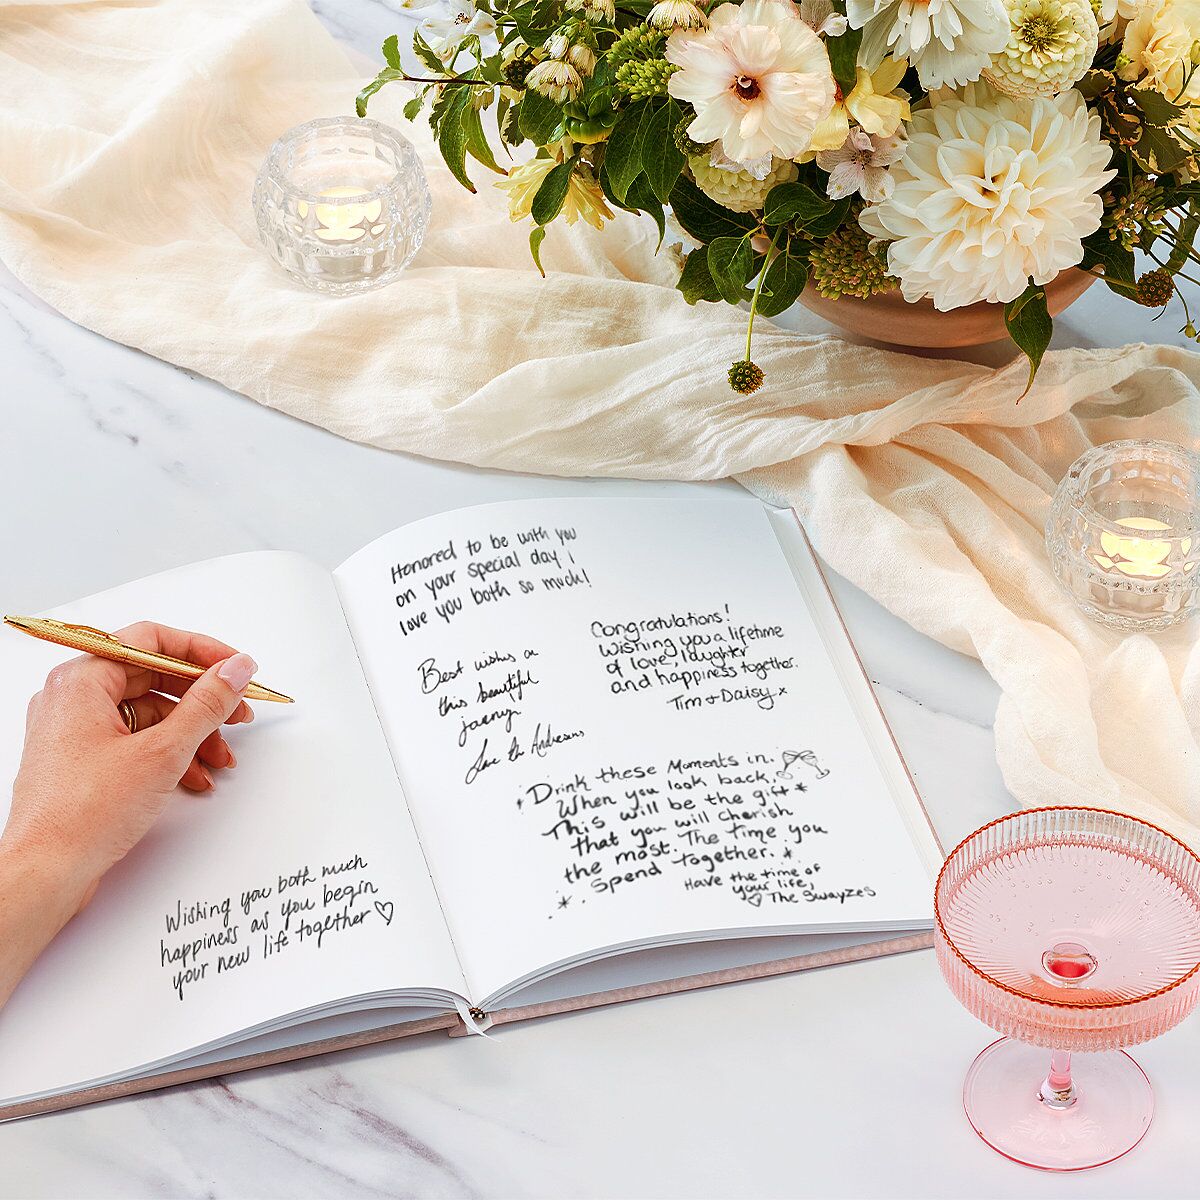 Wishing you both much
happiness as you begin
your new life together ♡
Honored to be with you
on your special day i
love you both so much!
Congratulations!
Wishing you a lifetime
of love, laughter
and happiness together.
Tim & Daisy x
Best wishes on
this beautiful
journey
Love the Andersens
Drink these Moments in.
When you look back,
This will be the gift
that you will cherish
the most. The time you
spend together.
Have the time of
your life,
♡ The Swayzes